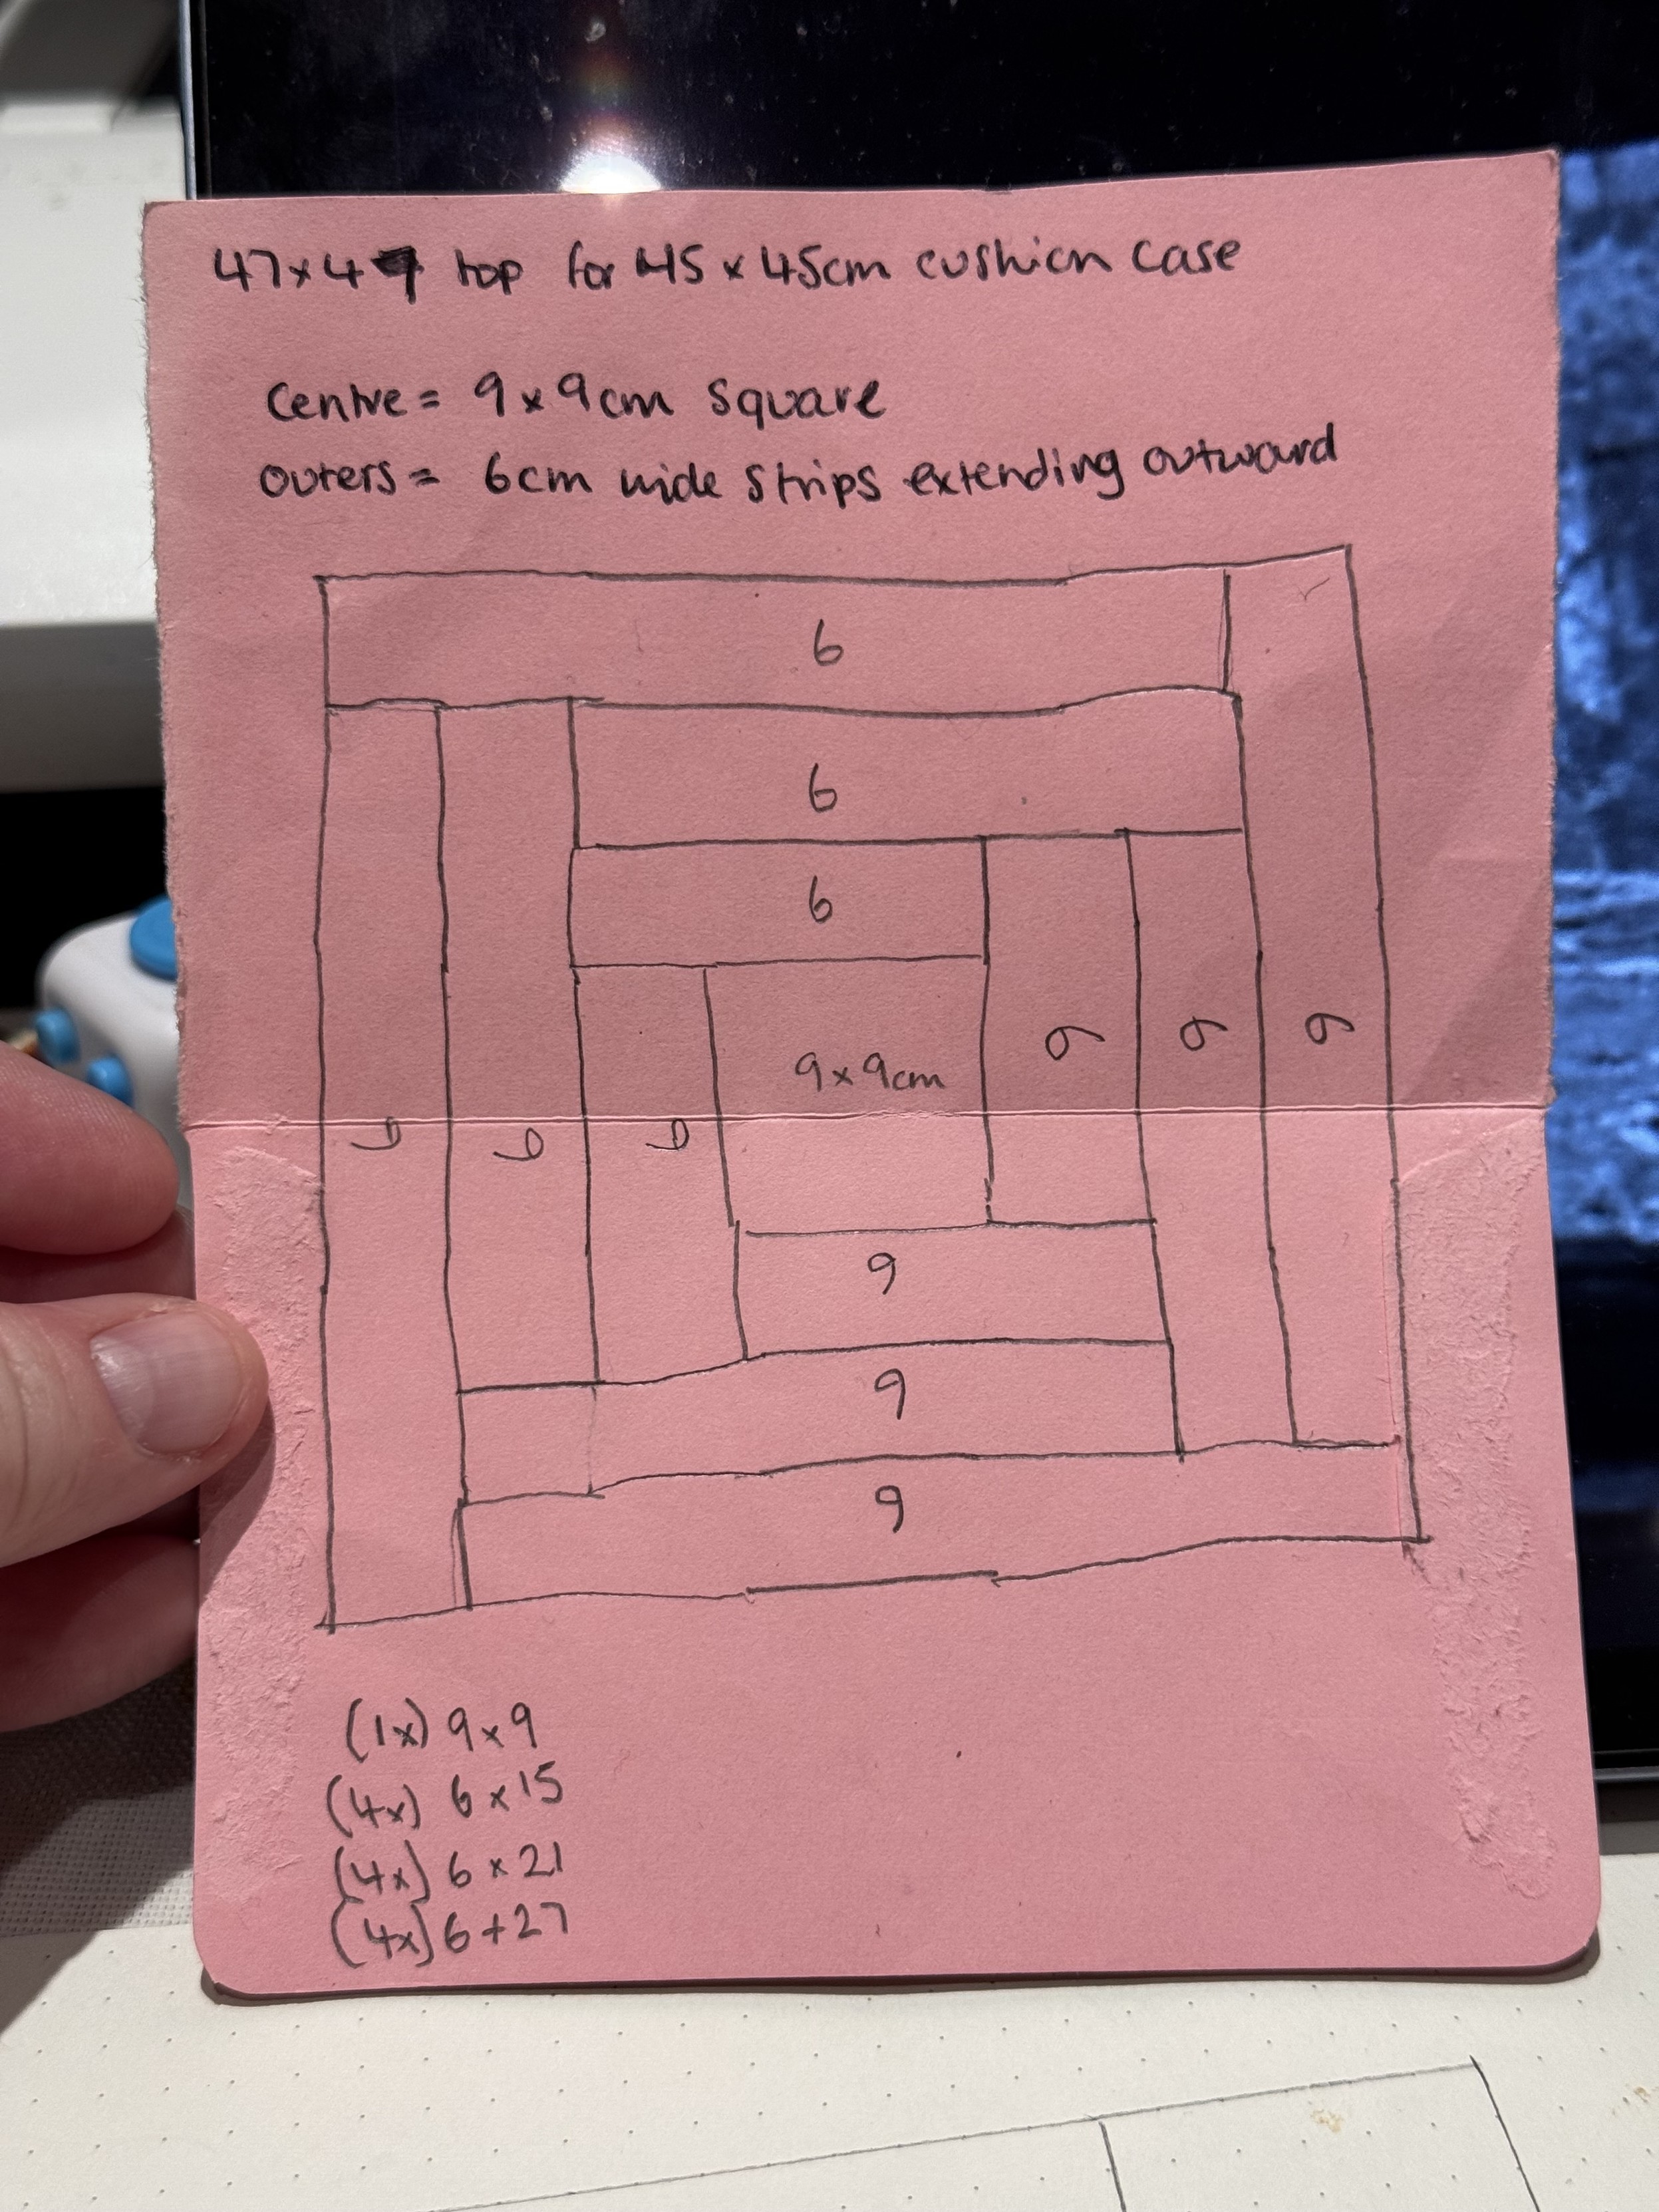 47x47 top for 45 x 45cm cushion case
Centre = 9 x 9cm square
Outers = 6cm wide strips extending outward
6
6
6
6
6
6
9x9cm
6
6
6
6
6
6
(1x) 9x9
(4x) 6 x 15
(4x) 6 x 21
(4x) 6+27